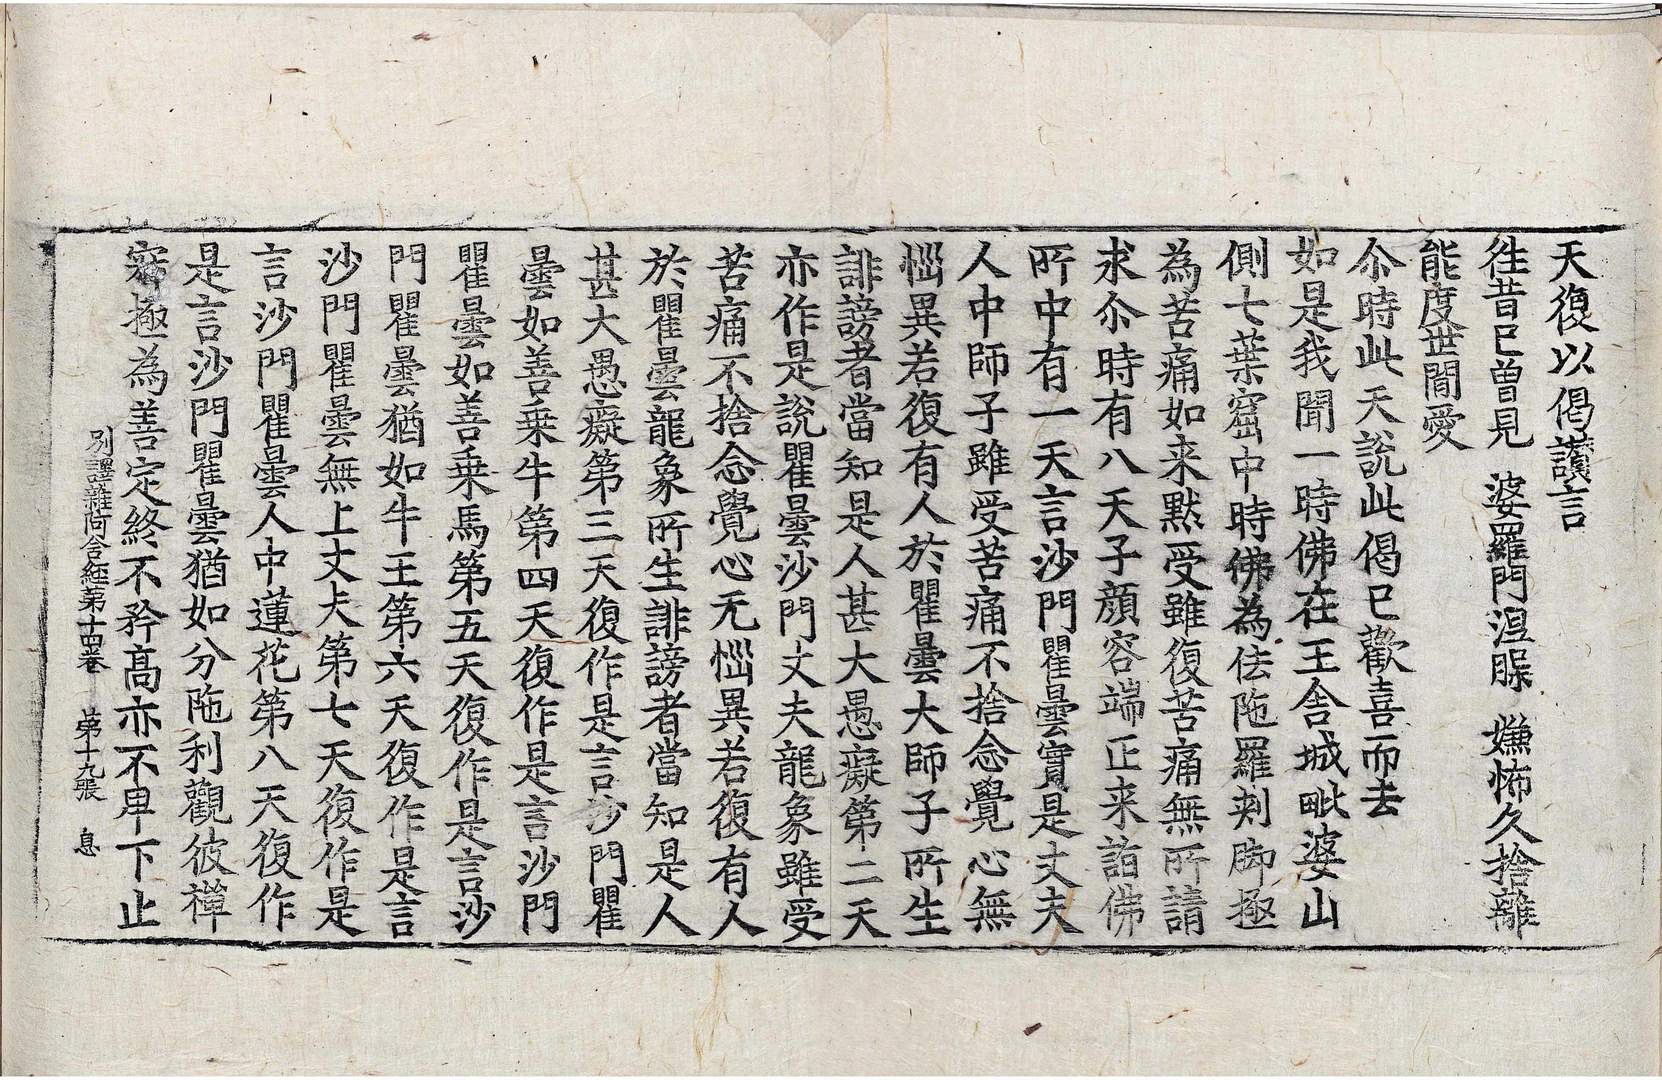 天復以偈讚言
往昔已曾見　婆羅門涅槃　嫌怖久捨離
能度世間愛
尒時此天說此偈已歡喜而去
如是我聞一時佛在王舍城毗婆山
側七葉窟中時佛為佉陁羅刾脚極
為苦痛如来默受雖復苦痛無所請
求尒時有八天子顔容端正来詣佛
所中有一天言沙門瞿曇實是丈夫
人中師子雖受苦痛不捨念覺心無
惱異若復有人於瞿曇大師子所生
誹謗者當知是人甚大愚癡第二天
亦作是說瞿曇沙門丈夫龍象雖受
苦痛不捨念覺心无惱異若復有人
於瞿曇龍象所生誹謗者當知是人
甚大愚癡第三天復作是言沙門瞿
曇如善乗牛第四天復作是言沙門
瞿曇如善乗馬第五天復作是言沙
門瞿曇猶如牛王第六天復作是言
沙門瞿曇無上丈夫第七天復作是
言沙門瞿曇人中蓮花第八天復作
是言沙門瞿曇猶如分陁利觀彼禪
寂極為善定終不矜高亦不卑下止
別譯雜阿含經第十四卷　第十九張　息